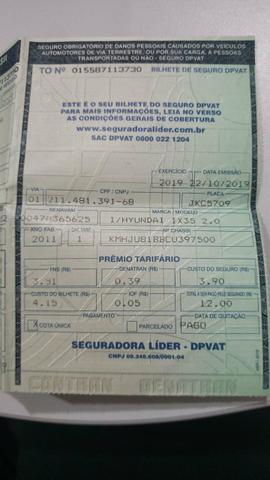 SEGURO OBRIGATÓRIO DE DANOS PESSOAIS CAUSADOS POR VEÍCULOS
AUTOMOTORES DE VIA TERRESTRE, OU POR SUA CARGA, A PESSOAS
TRANSPORTADAS OU NÃO - SEGURO DPVAT
TO Nº 015587113730 BILHETE DE SEGURO DPVAT
ESTE É O SEU BILHETE DO SEGURO DPVAT
PARA MAIS INFORMAÇÕES, LEIA NO VERSO
AS CONDIÇÕES GERAIS DE COBERTURA
www.seguradoralider.com.br
SAC DPVAT 0800 022 1204
EXERCÍCIO DATA EMISSÃO
2019 22/10/2019
VIA CPF / CNPJ PLACA
01 711.481.391-68 JKC5709
RENAVAM MARCA / MODELO
00470365625 I/HYUNDAI IX35 2.0
ANO FAB Nº CHASSI
2011 1 KMHJU81BBCU397500
PRÊMIO TARIFÁRIO
FNS (R$) DENATRAN (R$) CUSTO DO SEGURO (R$)
3.51 0.39 3.90
CUSTO DO BILHETE (R$) IOF (R$)
4.15 0.05 12.00
PAGAMENTO DATA DE QUITAÇÃO
X COTA ÚNICA PARCELADO PAGO
SEGURADORA LÍDER - DPVAT
CNPJ 09.248.608/0001-04
CONTRAN DENATRAN